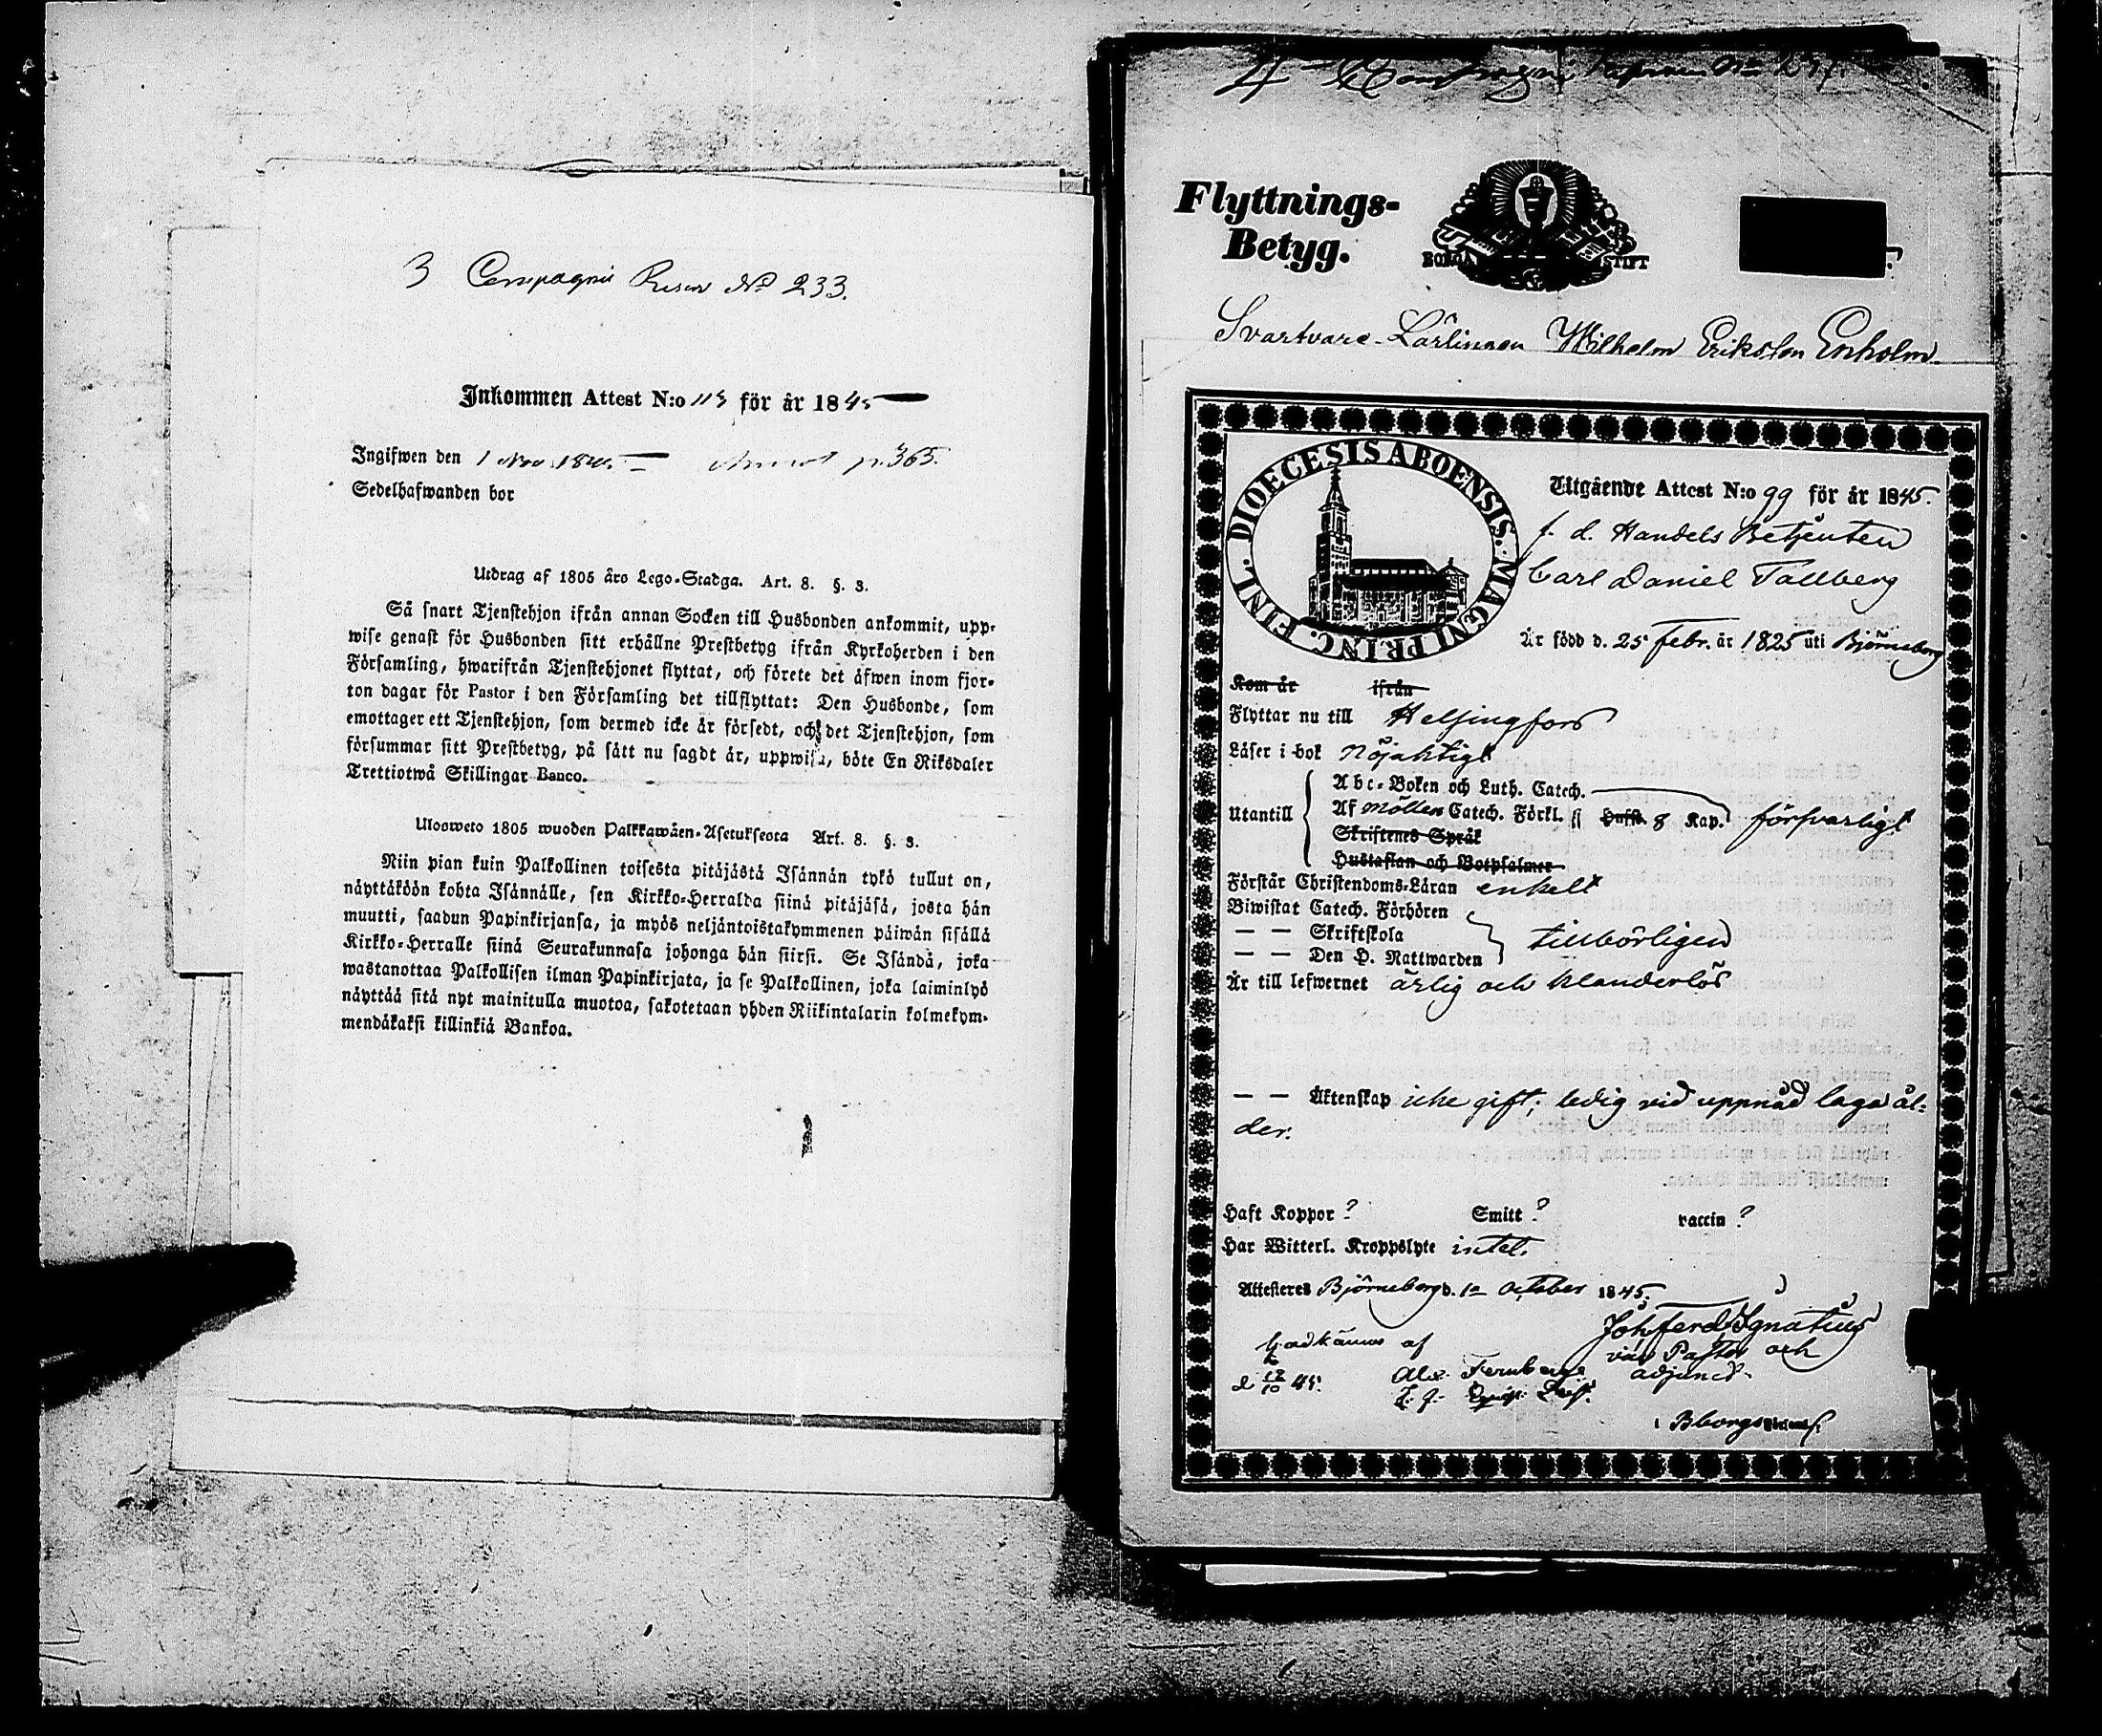 3 Compagnie Reserv No 233.
Inkommen Attest N:o 113 för år 1845
Ingifwen den 1 Nov. 1845. p. 365.
Sedelhafwanden bor
Utdrag af 1805 års Lego-Stadga. Art. 8. §. 3.
Så snart Tjenstehjon ifrån annan Socken till Husbonden ankommit, upp-
wise genast för Husbonden sitt erhållne Prestbetyg ifrån Kyrkoherden i den
Församling, hwarifrån Tjenstehjonet flyttat, och förete det äfwen inom fjor-
ton dagar för Pastor i den Församling det tillflyttat: Den Husbonde, som
emottager ett Tjenstehjon, som dermed icke är försedt, och det Tjenstehjon, som
försummar sitt Prestbetyg, på sätt nu sagdt är, uppwisa, böte En Riksdaler
Trettiotwå Skillingar Banco.
Ulosweto 1805 wuoden Palkkawäen-Asetuksesta Art. 8. §. 3.
Niin pian kuin Palkollinen toisesta pitäjästä Isännän tykö tullut on,
näyttäköön kohta Isännälle, sen Kirkko-Herralda siinä pitäjäsä, josta hän
muutti, saadun Papinkirjansa, ja myös neljäntoistakymmenen päiwän sisällä
Kirkko-Herralle siinä Seurakunnasa johonga hän siirsi. Se Isändä, joka
wastanottaa Palkollisen ilman Papinkirjata, ja se Palkollinen, joka laiminlyö
näyttää sitä nyt mainitulla muotoa, sakotetaan yhden Riikintalarin kolmekym-
mendäkaksi killinkiä Bankoa.
4 Compagni
Flyttnings-
Betyg.
BORGÅ STIFT
Svartvare-Lärlingen Wilhelm Eriksson Enholm
DIOECESIS ABOENSIS. MAGNI PRINC. FINL.
Utgående Attest N:o 99 för år 1845.
f. d. Handels Betjenten
Carl Daniel Tallberg
Är född d. 25 Febr. år 1825 uti Björneborg
Kom år ifrån
Flyttar nu till Helsingfors
Läser i bok nöjaktigt
Utantill
Abc-Boken och Luth. Catech.
Af Möllers Catech. Förkl. 8 Kap. försvarligt
Skriftenes Språk
Hustaflan och Botpsalmer
Förstår Christendoms-Läran enkelt
Biwistat Catech. Förhören
— — Skriftskola tillbörligen
— — Den H. Nattwarden
Är till lefwernet ärlig och klanderlös
— — Äktenskap icke gift; ledig vid uppnåd laga ål-
der.
Haft Koppor ? Smitt ? vaccin ?
Har Witterl. Kroppslyte intet.
Attesteras Björneborg d. 10 October 1845.
Joh. Ferd. Ignatius
Godkännes af vice Pastor och
d 12/10 45. Alex. adjunct.